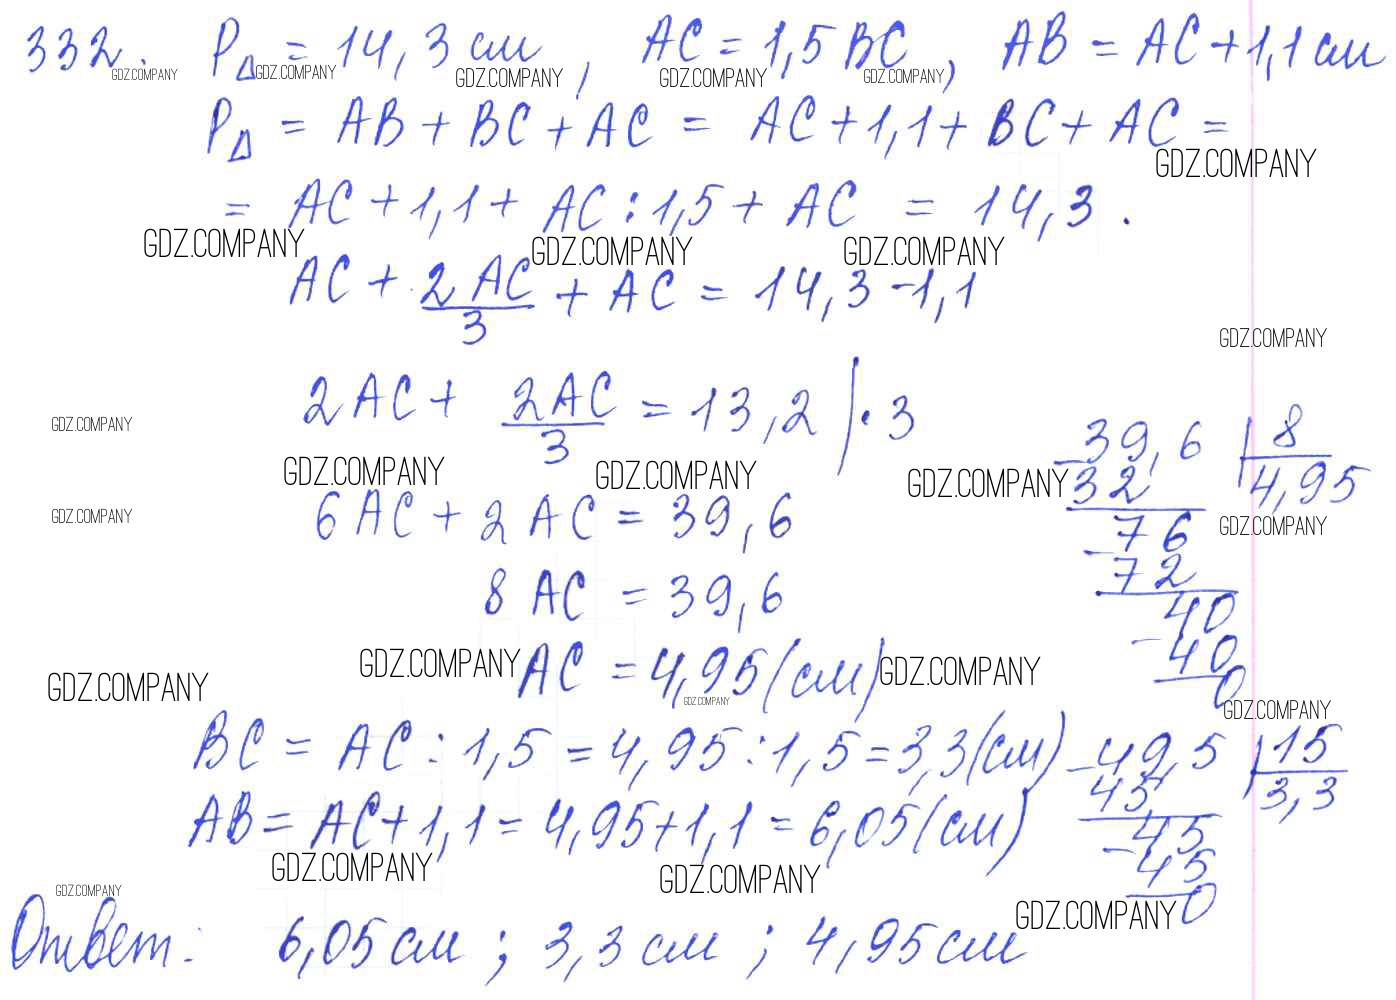 332. P△ = 14,3 см, AC = 1,5 BC, AB = AC + 1,1 см
GDZ.COMPANY GDZ.COMPANY GDZ.COMPANY GDZ.COMPANY GDZ.COMPANY
P△ = AB + BC + AC = AC + 1,1 + BC + AC =
GDZ.COMPANY
= AC + 1,1 + AC : 1,5 + AC = 14,3.
GDZ.COMPANY GDZ.COMPANY GDZ.COMPANY
AC + 2AC/3 + AC = 14,3 - 1,1
GDZ.COMPANY
2AC + 2AC/3 = 13,2 | · 3
GDZ.COMPANY
GDZ.COMPANY GDZ.COMPANY GDZ.COMPANY
6AC + 2AC = 39,6
GDZ.COMPANY GDZ.COMPANY
8AC = 39,6
AC = 4,95 (см)
GDZ.COMPANY GDZ.COMPANY GDZ.COMPANY
GDZ.COMPANY
39,6 | 8
- 32 | 4,95
76
- 72
40
- 40
0
GDZ.COMPANY
BC = AC : 1,5 = 4,95 : 1,5 = 3,3 (см)
AB = AC + 1,1 = 4,95 + 1,1 = 6,05 (см)
49,5 | 15
- 45 | 3,3
45
- 45
0
GDZ.COMPANY GDZ.COMPANY
GDZ.COMPANY GDZ.COMPANY
Ответ: 6,05 см; 3,3 см; 4,95 см